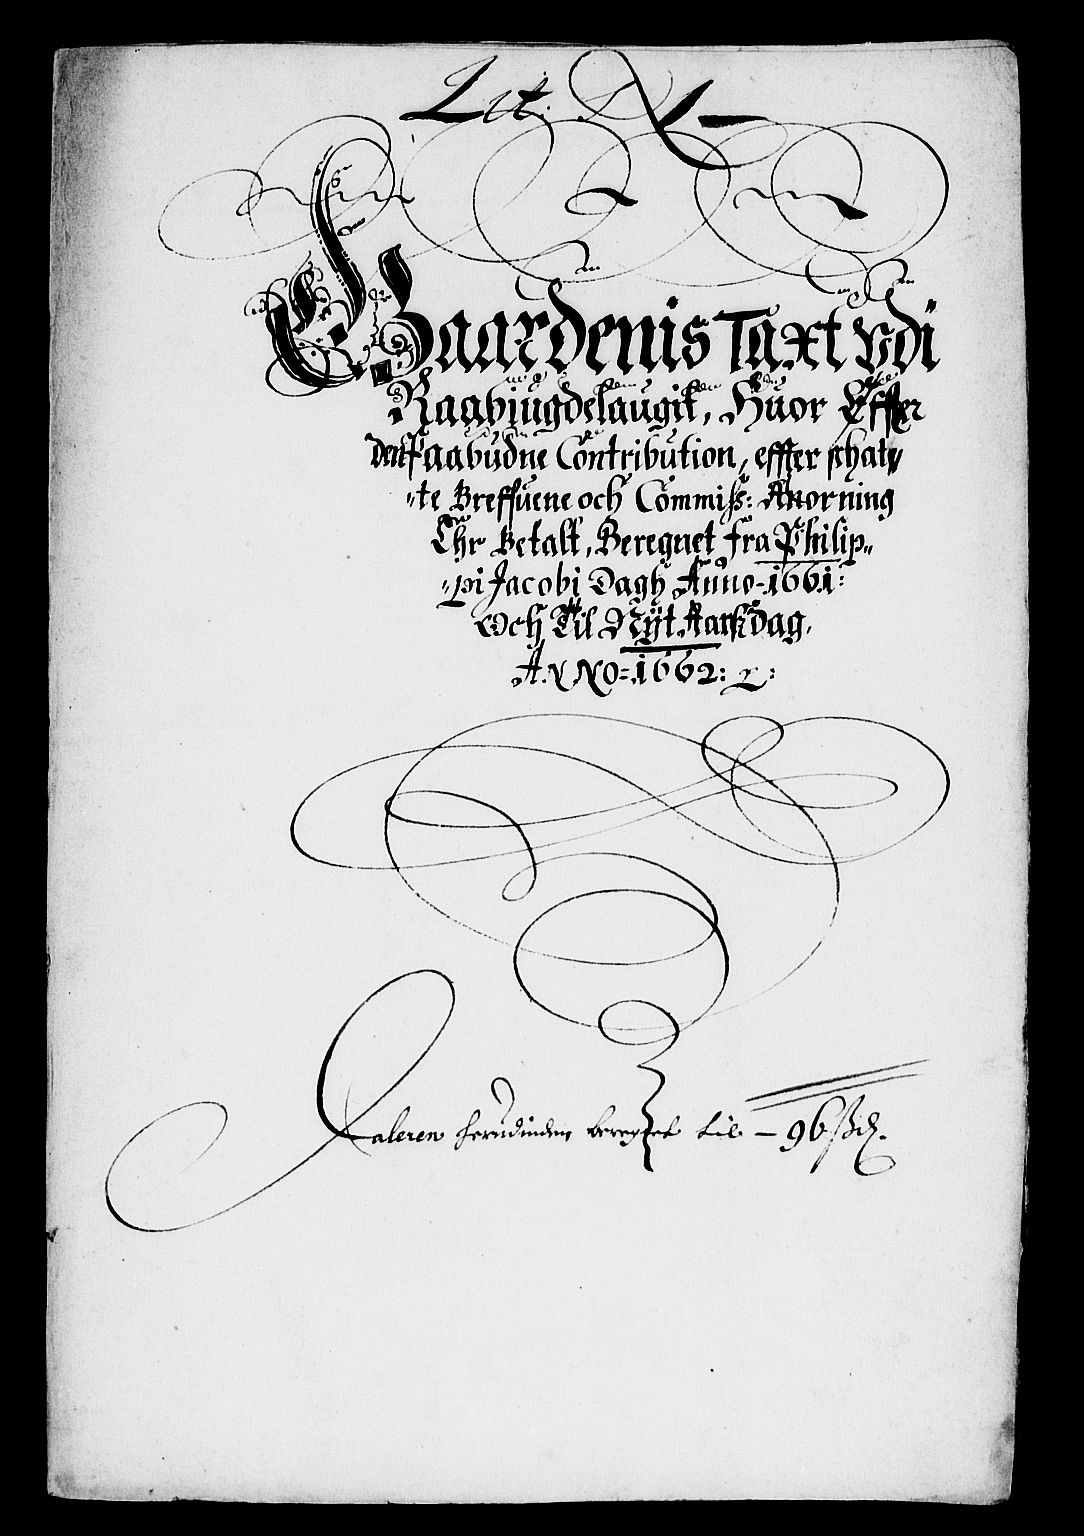 Lit: A
Gaardenis Taxt Vdi
Raabÿugdelaugit, Huor Effter
den Paabudne Contribution, effter schat„
„te Breffuene och Commiss: Anorning
Ehr Betalt, Beregnet fra Philip„
„pi Jacobi Dagh Anno-1661:
Och Til Nÿt Aarsdag,
ANNO=1662:
Daleren herudinden beregnet til – 96 ß d.